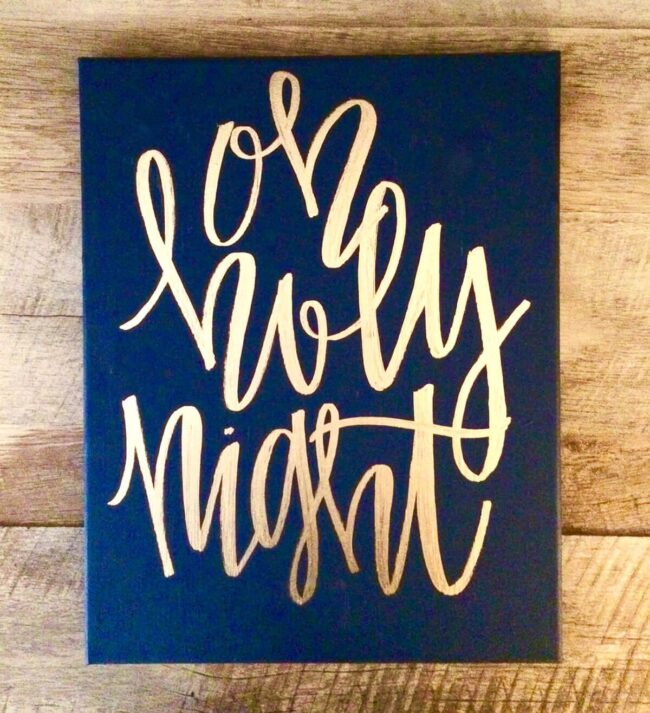 oh
holy
night